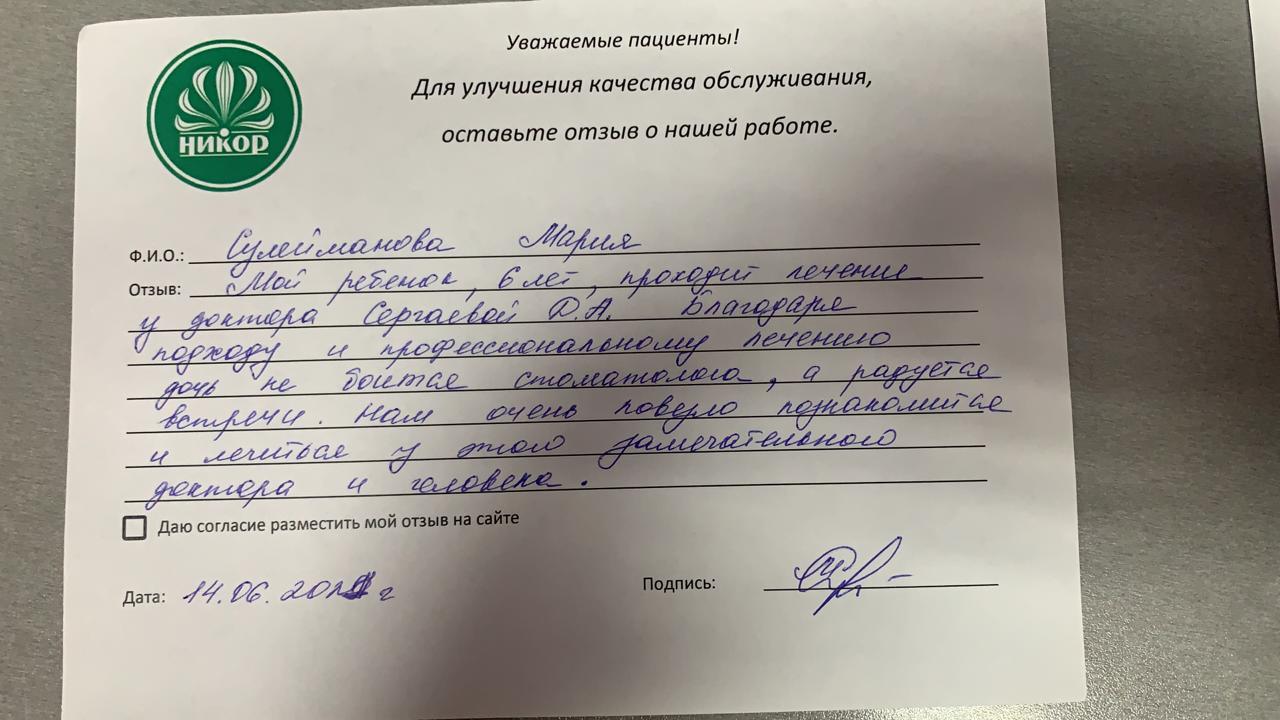 Уважаемые пациенты!
Для улучшения качества обслуживания,
оставьте отзыв о нашей работе.
НИКОР
Ф.И.О.: Сулейманова Мария
Отзыв: Мой ребенок, 6 лет, проходит лечение
у доктора Сергаевой Д.А. Благодаря
подходу и профессиональному лечению
дочь не боится стоматолога, а радуется
встречи. Нам очень повезло познакомиться
и лечиться у этого замечательного
доктора и человека.
Даю согласие разместить мой отзыв на сайте
Дата: 14.06. г
Подпись: